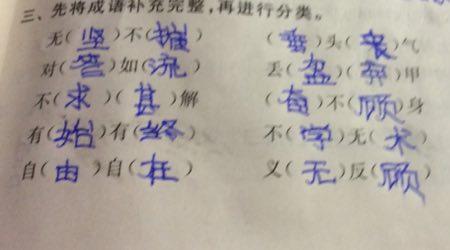 三、先将成语补充完整,再进行分类。
无(坚)不(摧) (垂)头(丧)气
对(答)如(流) 丢(盔)(弃)甲
不(求)(甚)解 (奋)不(顾)身
有(始)有(终) 不(学)无(术)
自(由)自(在) 义(无)反(顾)